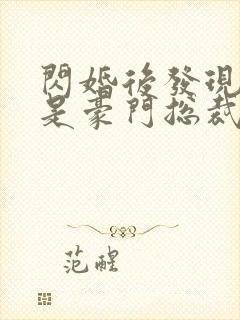 閃婚後發現
是豪門總裁
范醒